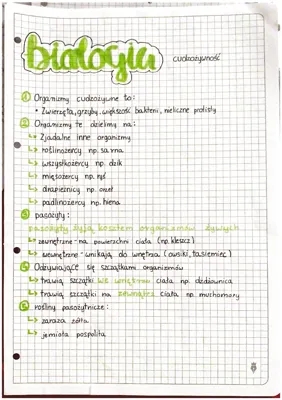 biologia
cudzożywność
① Organizmy cudzożywne to:
• Zwierzęta, grzyby, większość bakterii, nieliczne protisty
② Organizmy te dzielimy na:
↳ Zjadalne inne organizmy
↳ roślinożercy np. sarna
↳ wszystkożercy np. dzik
↳ mięsożercy np. ryś
↳ drapieżnicy np. orzeł
↳ padlinożercy np. hiena
③ pasożyty:
pasożyty żyją kosztem organizmów żywych
↳ zewnętrzne - na powierzchni ciała (np. kleszcz)
↳ wewnętrzne - wnikają do wnętrza (owsiki, tasiemiec)
④ Odżywiające się szczątkami organizmów
↳ trawią szczątki we wnętrzu ciała np. dżdżownica
↳ trawią szczątki na zewnątrz ciała np. muchomory
⑤ rośliny pasożytnicze:
↳ zaraza żółta
↳ jemioła pospolita